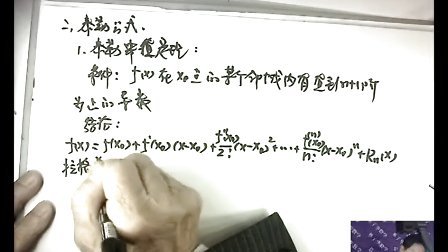 二、泰勒公式.
1. 泰勒中值定理:
条件: f(x)在x₀点的某个邻域内有直到n+1阶
以上的导数
结论:
f(x)=f(x₀)+f'(x₀)(x-x₀)+f''(x₀)/2!(x-x₀)²+…+f⁽ⁿ⁾(x₀)/n!(x-x₀)ⁿ+Rₙ(x)
拉格